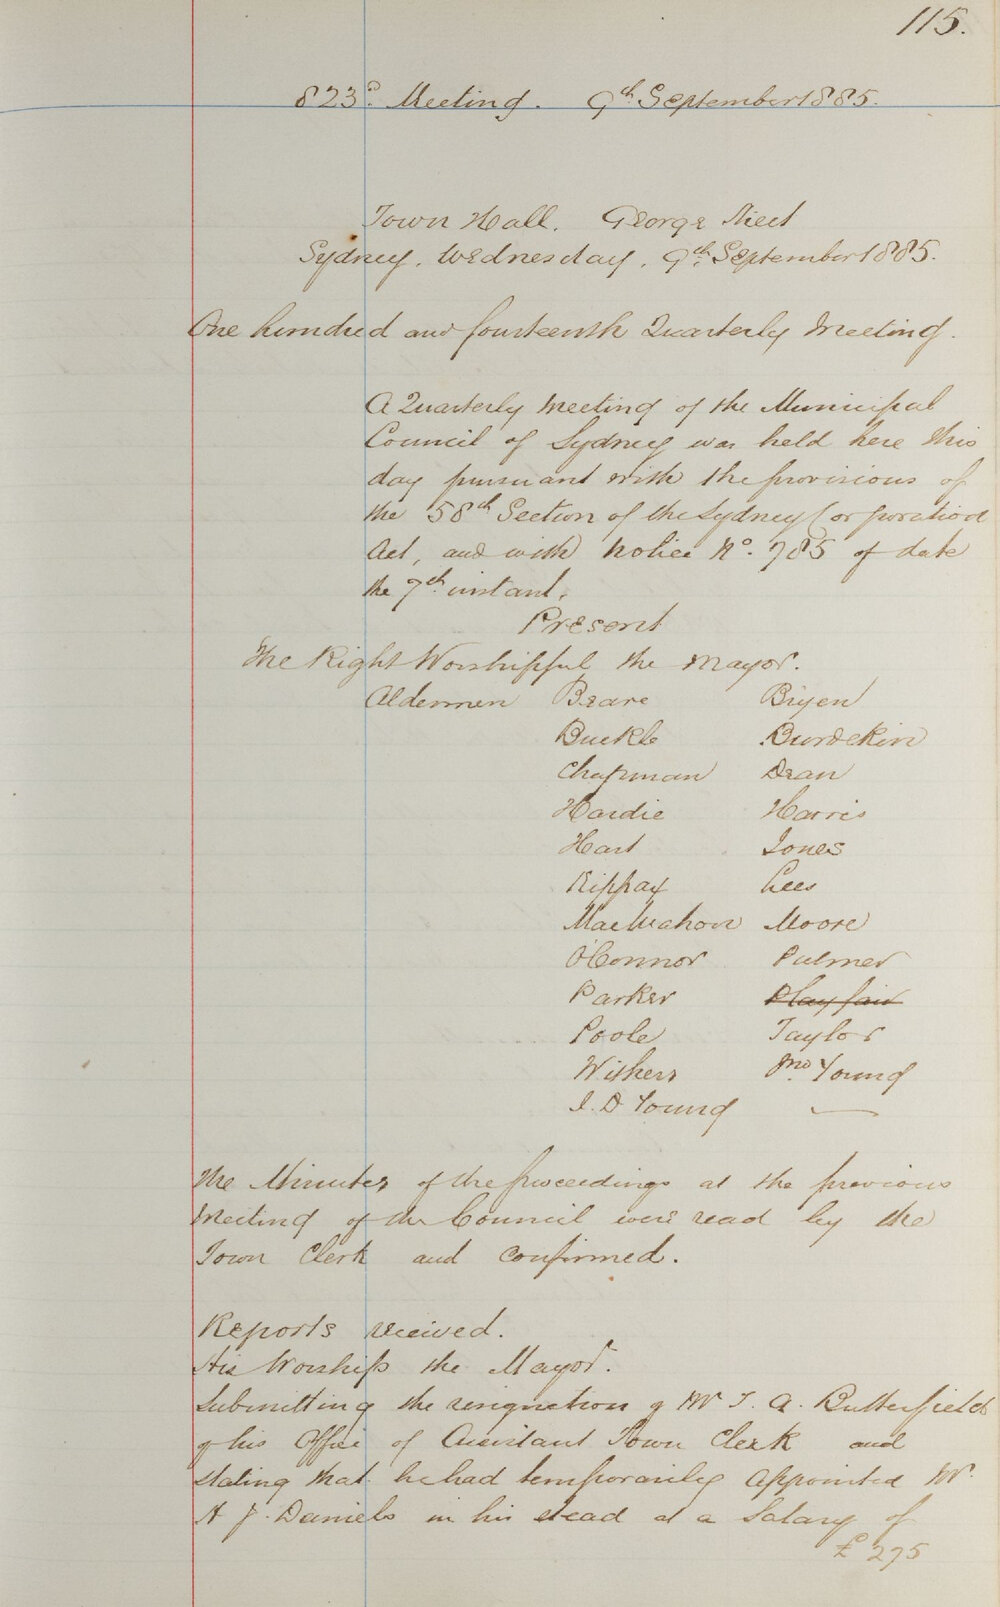 115.
823d. Meeting. 9th September 1885.
Town Hall. George Street
Sydney. Wednesday. 9th. September 1885.
One hundred and fourteenth Quarterly Meeting.
A Quarterly Meeting of the Municipal
Council of Sydney was held here this
day pursuant with the provisions of
the 58th Section of the Sydney Corporation
Act, and with notice No. 785 of date
the 7th instant.
Present
The Right Worshipful the Mayor.
Aldermen Beare Bryen
Buckle Burdekin
Chapman Dean
Hardie Harris
Hart Jones
Kippax Lees
MacMahon Moore
O'Connor Palmer
Parker Playfair
Poole Taylor
Withers Jno. Young
J. D Young —
The Minutes of the proceedings at the previous
Meeting of the Council were read by the
Town Clerk and confirmed.
Reports received.
His Worship the Mayor.
Submitting the resignation of Mr T. A. Butterfield
of his Office of Assistant Town Clerk and
stating that he had temporarily appointed Mr.
H J. Daniels in his stead at a Salary of
£275